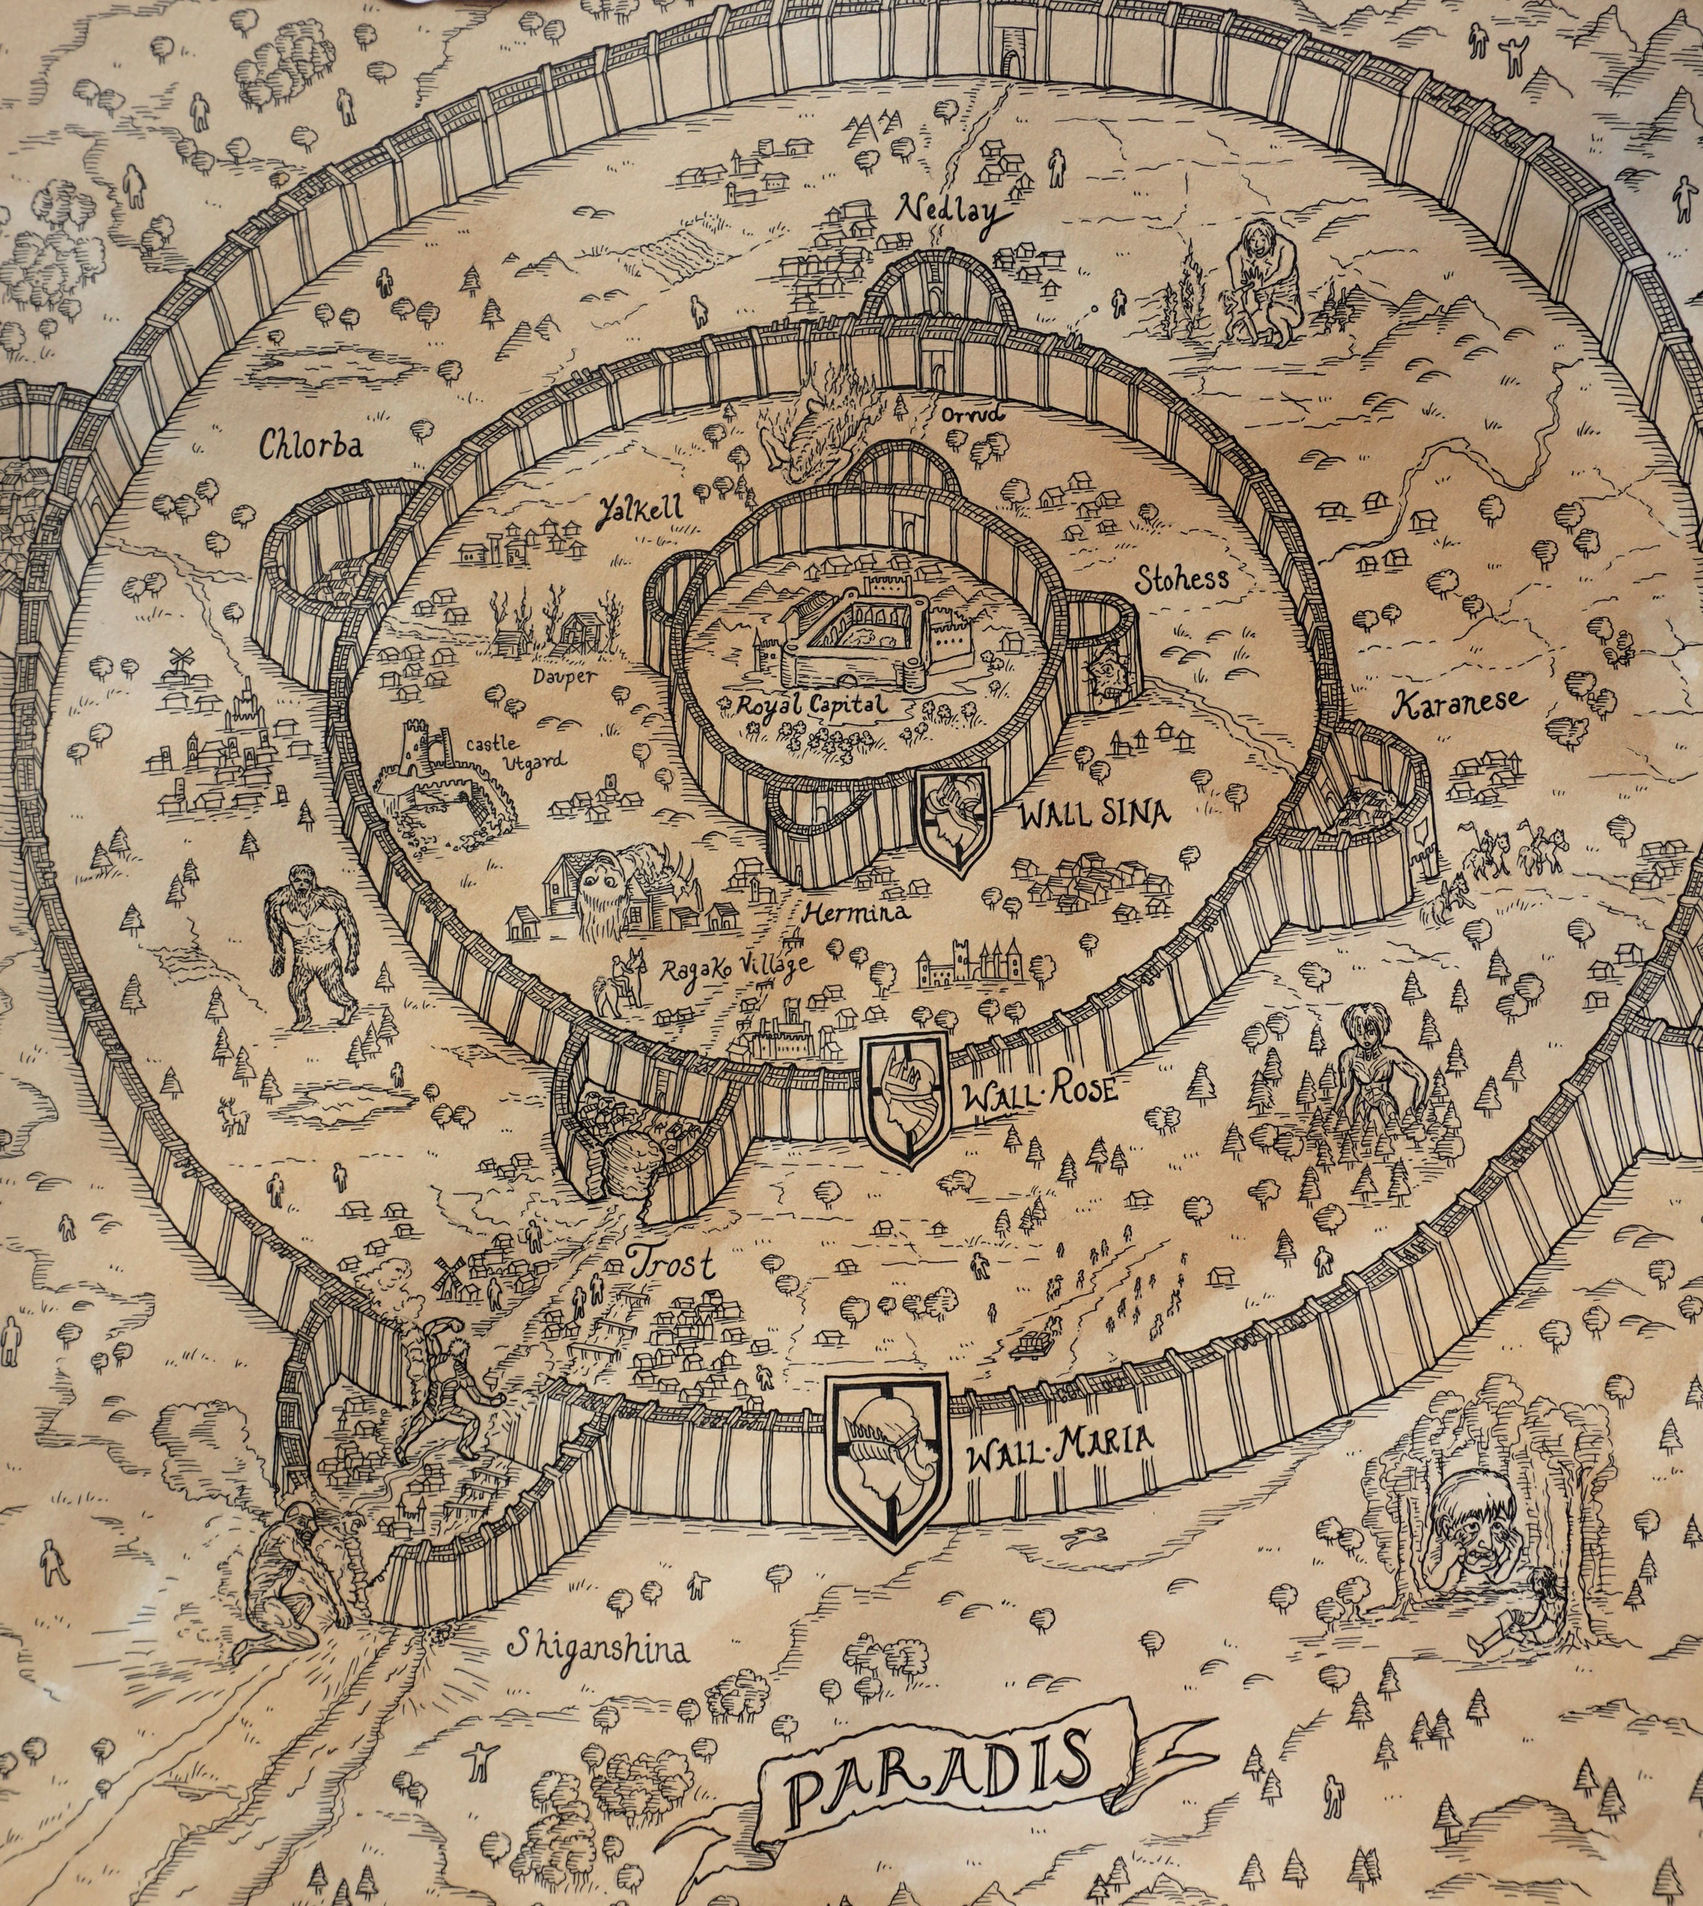 Nedlay
Orvud
Chlorba
Yalkell
Stohess
Dauper
Royal Capital
Karanese
castle
Utgard
WALL SINA
Hermina
Ragako Village
WALL·ROSE
Trost
WALL·MARIA
Shiganshina
PARADIS